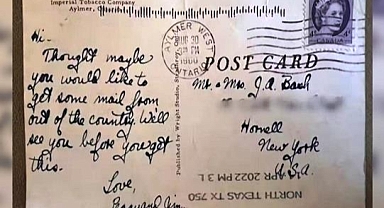 Imperial Tobacco Company
Aylmer,
Hi-
Thought maybe
you would like to
get some mail from
out of the country. Will
see you before you get
this.
Love,
Published by Wright Studio,
AYLMER WEST
PM
1960
ONTARIO
POST CARD
CANADA
Mr. & Mrs. J.A. Bash
Hornell
New York
U.S.A.
NORTH TEXAS TX 750
APR 2022 PM 3 L